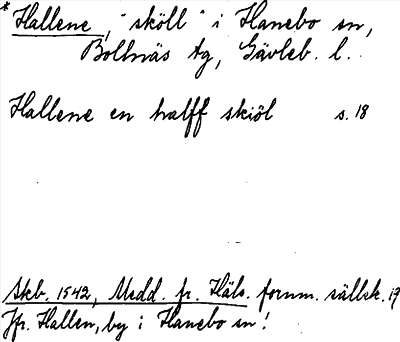 *Hallene, "sköll" i Hanebo sn,
Bollnäs tg, Gävleb. l.
Hallene en halff skiöl s. 18
Skb. 1542, Medd. fr. Häls. fornm. sällsk. 19
Jfr. Hallen, by i Hanebo sn!